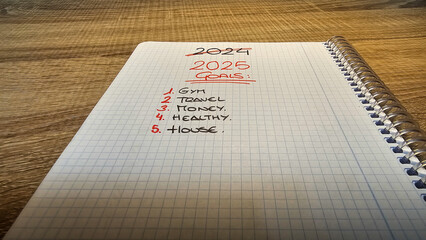 2024
2025
GOALS:
1. GYM
2 TRAVEL
3. MONEY.
4. HEALTHY.
5. HOUSE.